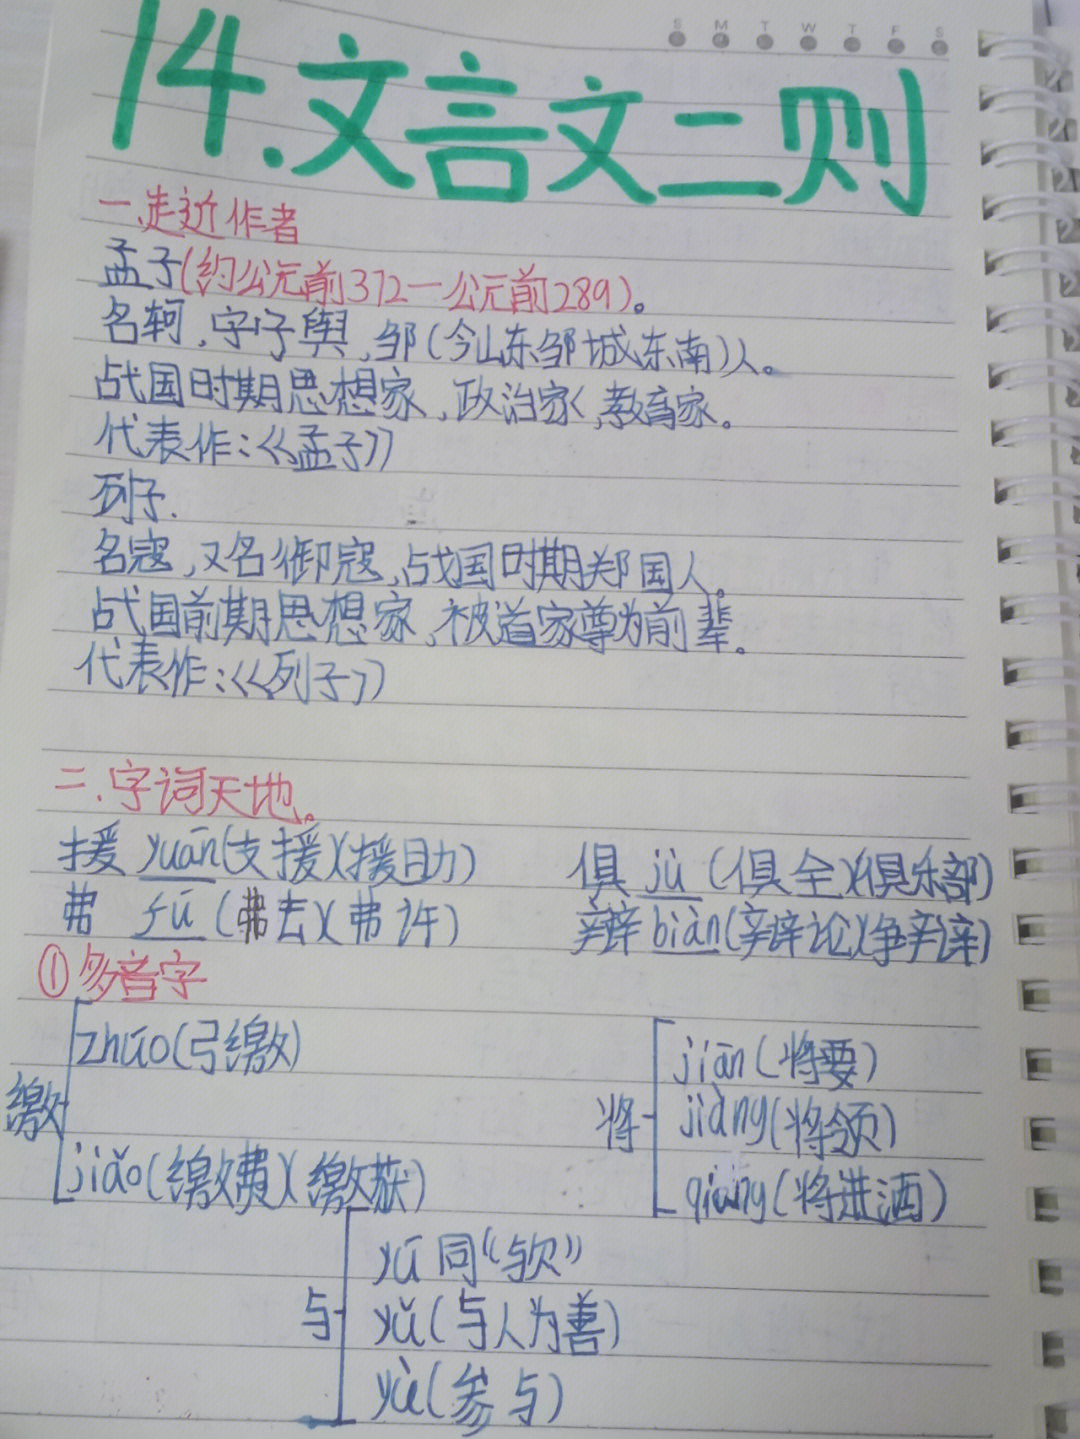 S M T W T F S
14.文言文二则
一.走近作者
孟子(约公元前372—公元前289)。
名轲,字子舆,邹(今山东邹城东南)人。
战国时期思想家,政治家,教育家。
代表作:《孟子》
列子.
名寇,又名御寇,战国时期郑国人。
战国前期思想家,被道家尊为前辈。
代表作:《列子》
二.字词天地。
援 yuān(支援)(援助) 俱 jù (俱全)(俱乐部)
弗 fú (弗去)(弗许) 辩 biàn(辩论)(争辩)
①多音字
缴 zhuó(弓缴)
jiǎo(缴费)(缴获)
将 jiān(将要)
jiàng(将领)
qiāng(将进酒)
与 yú 同“欤”
yǔ(与人为善)
yù(参与)